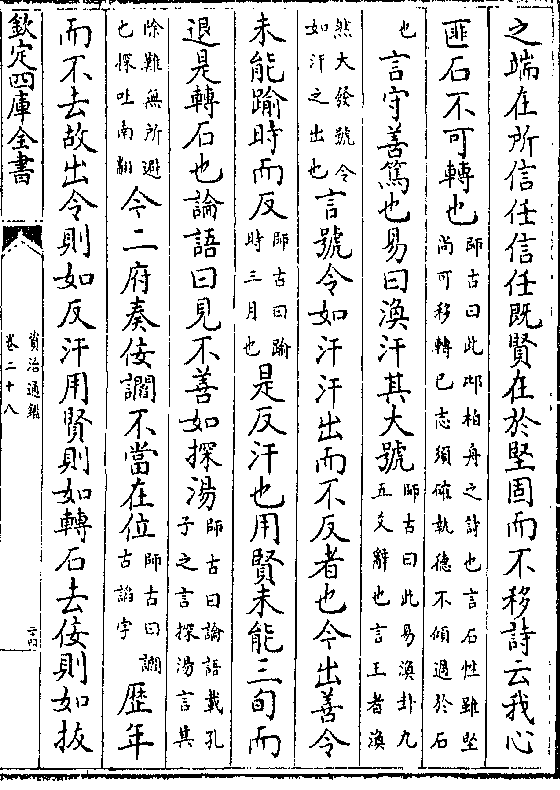 之端在所信任信任既賢在於堅固而不移詩云我心
匪石不可轉也師古曰此邶柏舟之詩也言石性雖堅尚可移轉已志須確執德不傾過於石
也言守善篤也易曰渙汗其大號師古曰此易渙卦九五爻辭也言王者渙
然大發號令如汗之出也言號令如汗汗出而不反者也今出善令
未能踰時而反師古曰踰時三月也是反汗也用賢未能三旬而
退是轉石也論語曰見不善如探湯師古曰論語載孔子之言探湯言其
除難無所避也探吐南翻今二府奏佞讇不當在位師古曰讇古諂字歴年
而不去故出令則如反汗用賢則如轉石去佞則如拔
欽定四庫全書
資治通鑑
卷二十八